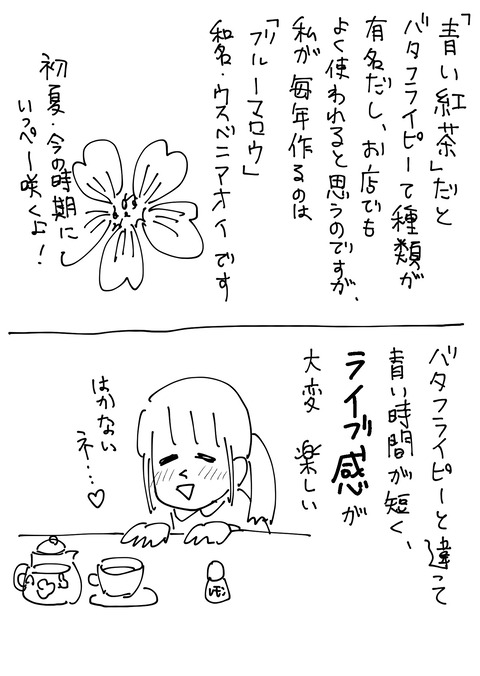 「青い紅茶」だと
バタフライピーて種類が
有名だし、お店でも
よく使われると思うのですが、
私が毎年作るのは
「ブルーマロウ」
和名・ウスベニアオイです
初夏・今の時期に
いっぺー咲くよ!
バタフライピーと違って
青い時間が短く、
ライブ感が
大変楽しい
はかない
ネ…♡
レモン